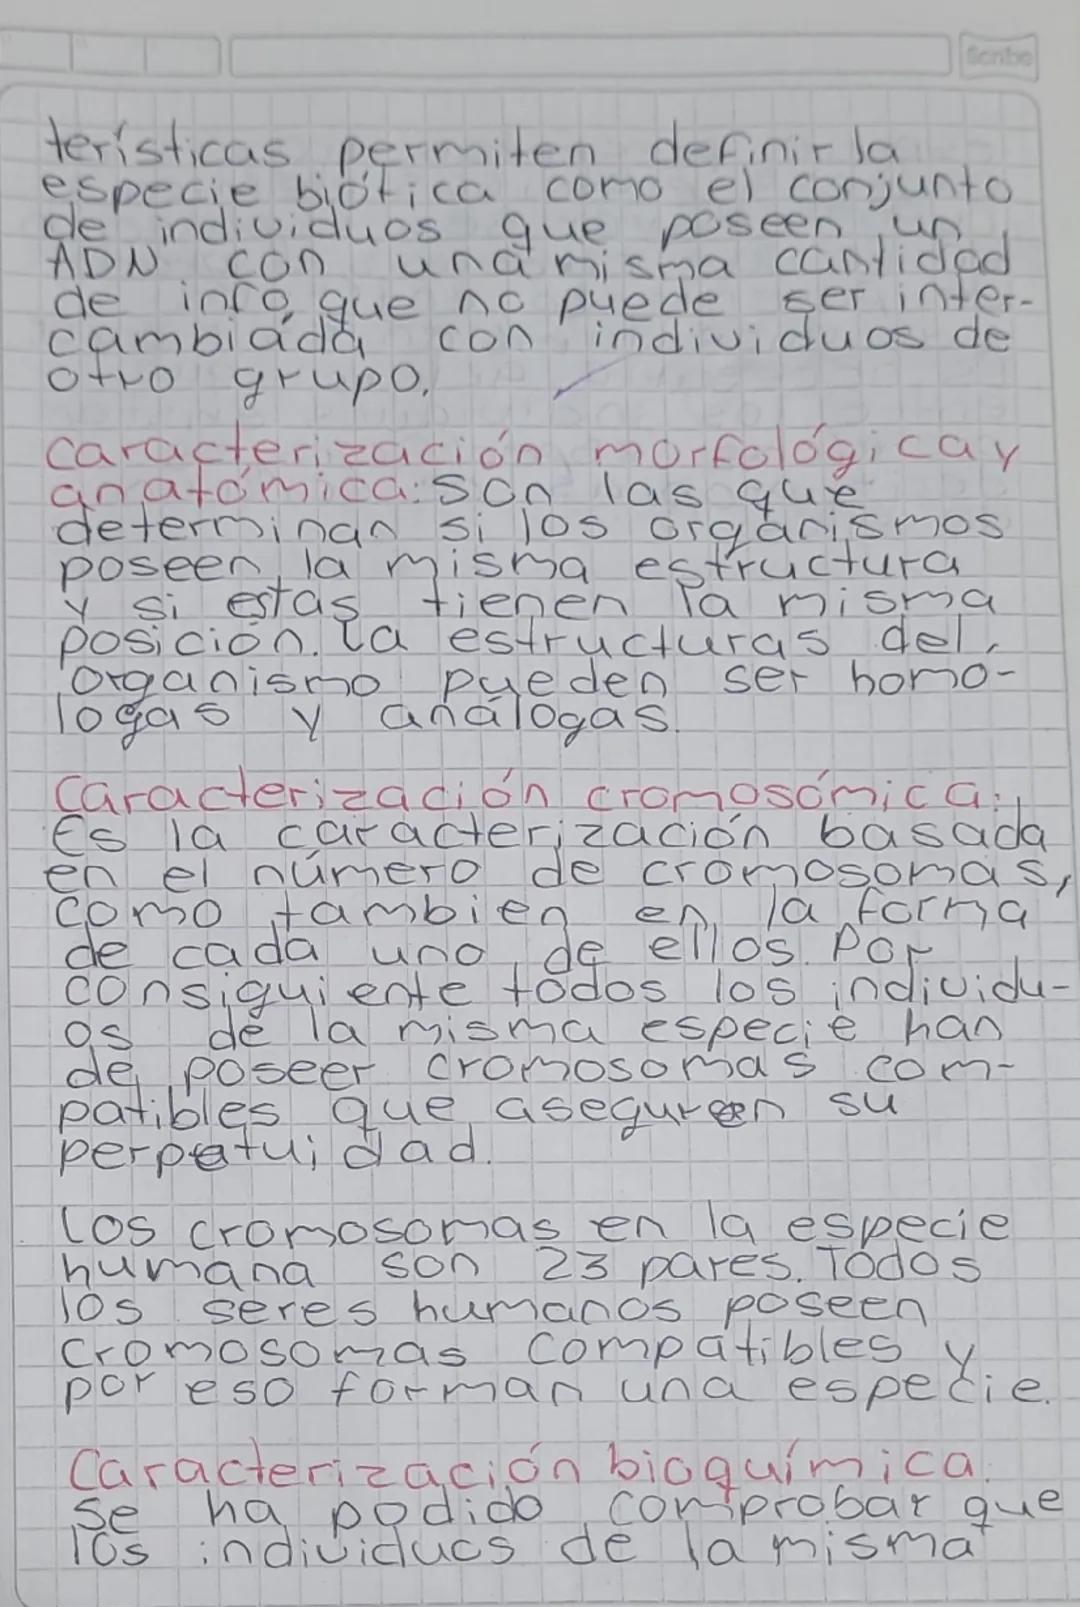 Scribe
terísticas permiten definir la
especie biótica como el conjunto
de individuos que poseen un
ADN con una misma cantidad
de info que no puede ser inter-
cambiada con individuos de
otro grupo.
Caracterización morfológica y
anatómica: Son las que
determinan si los organismos
poseen la misma estructura
y si estas tienen la misma
posición. La estructuras del
organismo pueden ser homo-
logas y análogas.
Caracterización cromosómica:
Es la caracterización basada
en el número de cromosomas,
como tambien en la forma
de cada uno de ellos. Por
consiguiente todos los individu-
os de la misma especie han
de poseer cromosomas com-
patibles que aseguren su
perpetuidad.
Los cromosomas en la especie
humana son 23 pares. Todos
los seres humanos poseen
cromosomas compatibles y
por eso forman una especie.
Caracterización bioquímica.
Se ha podido comprobar que
los individuos de la misma